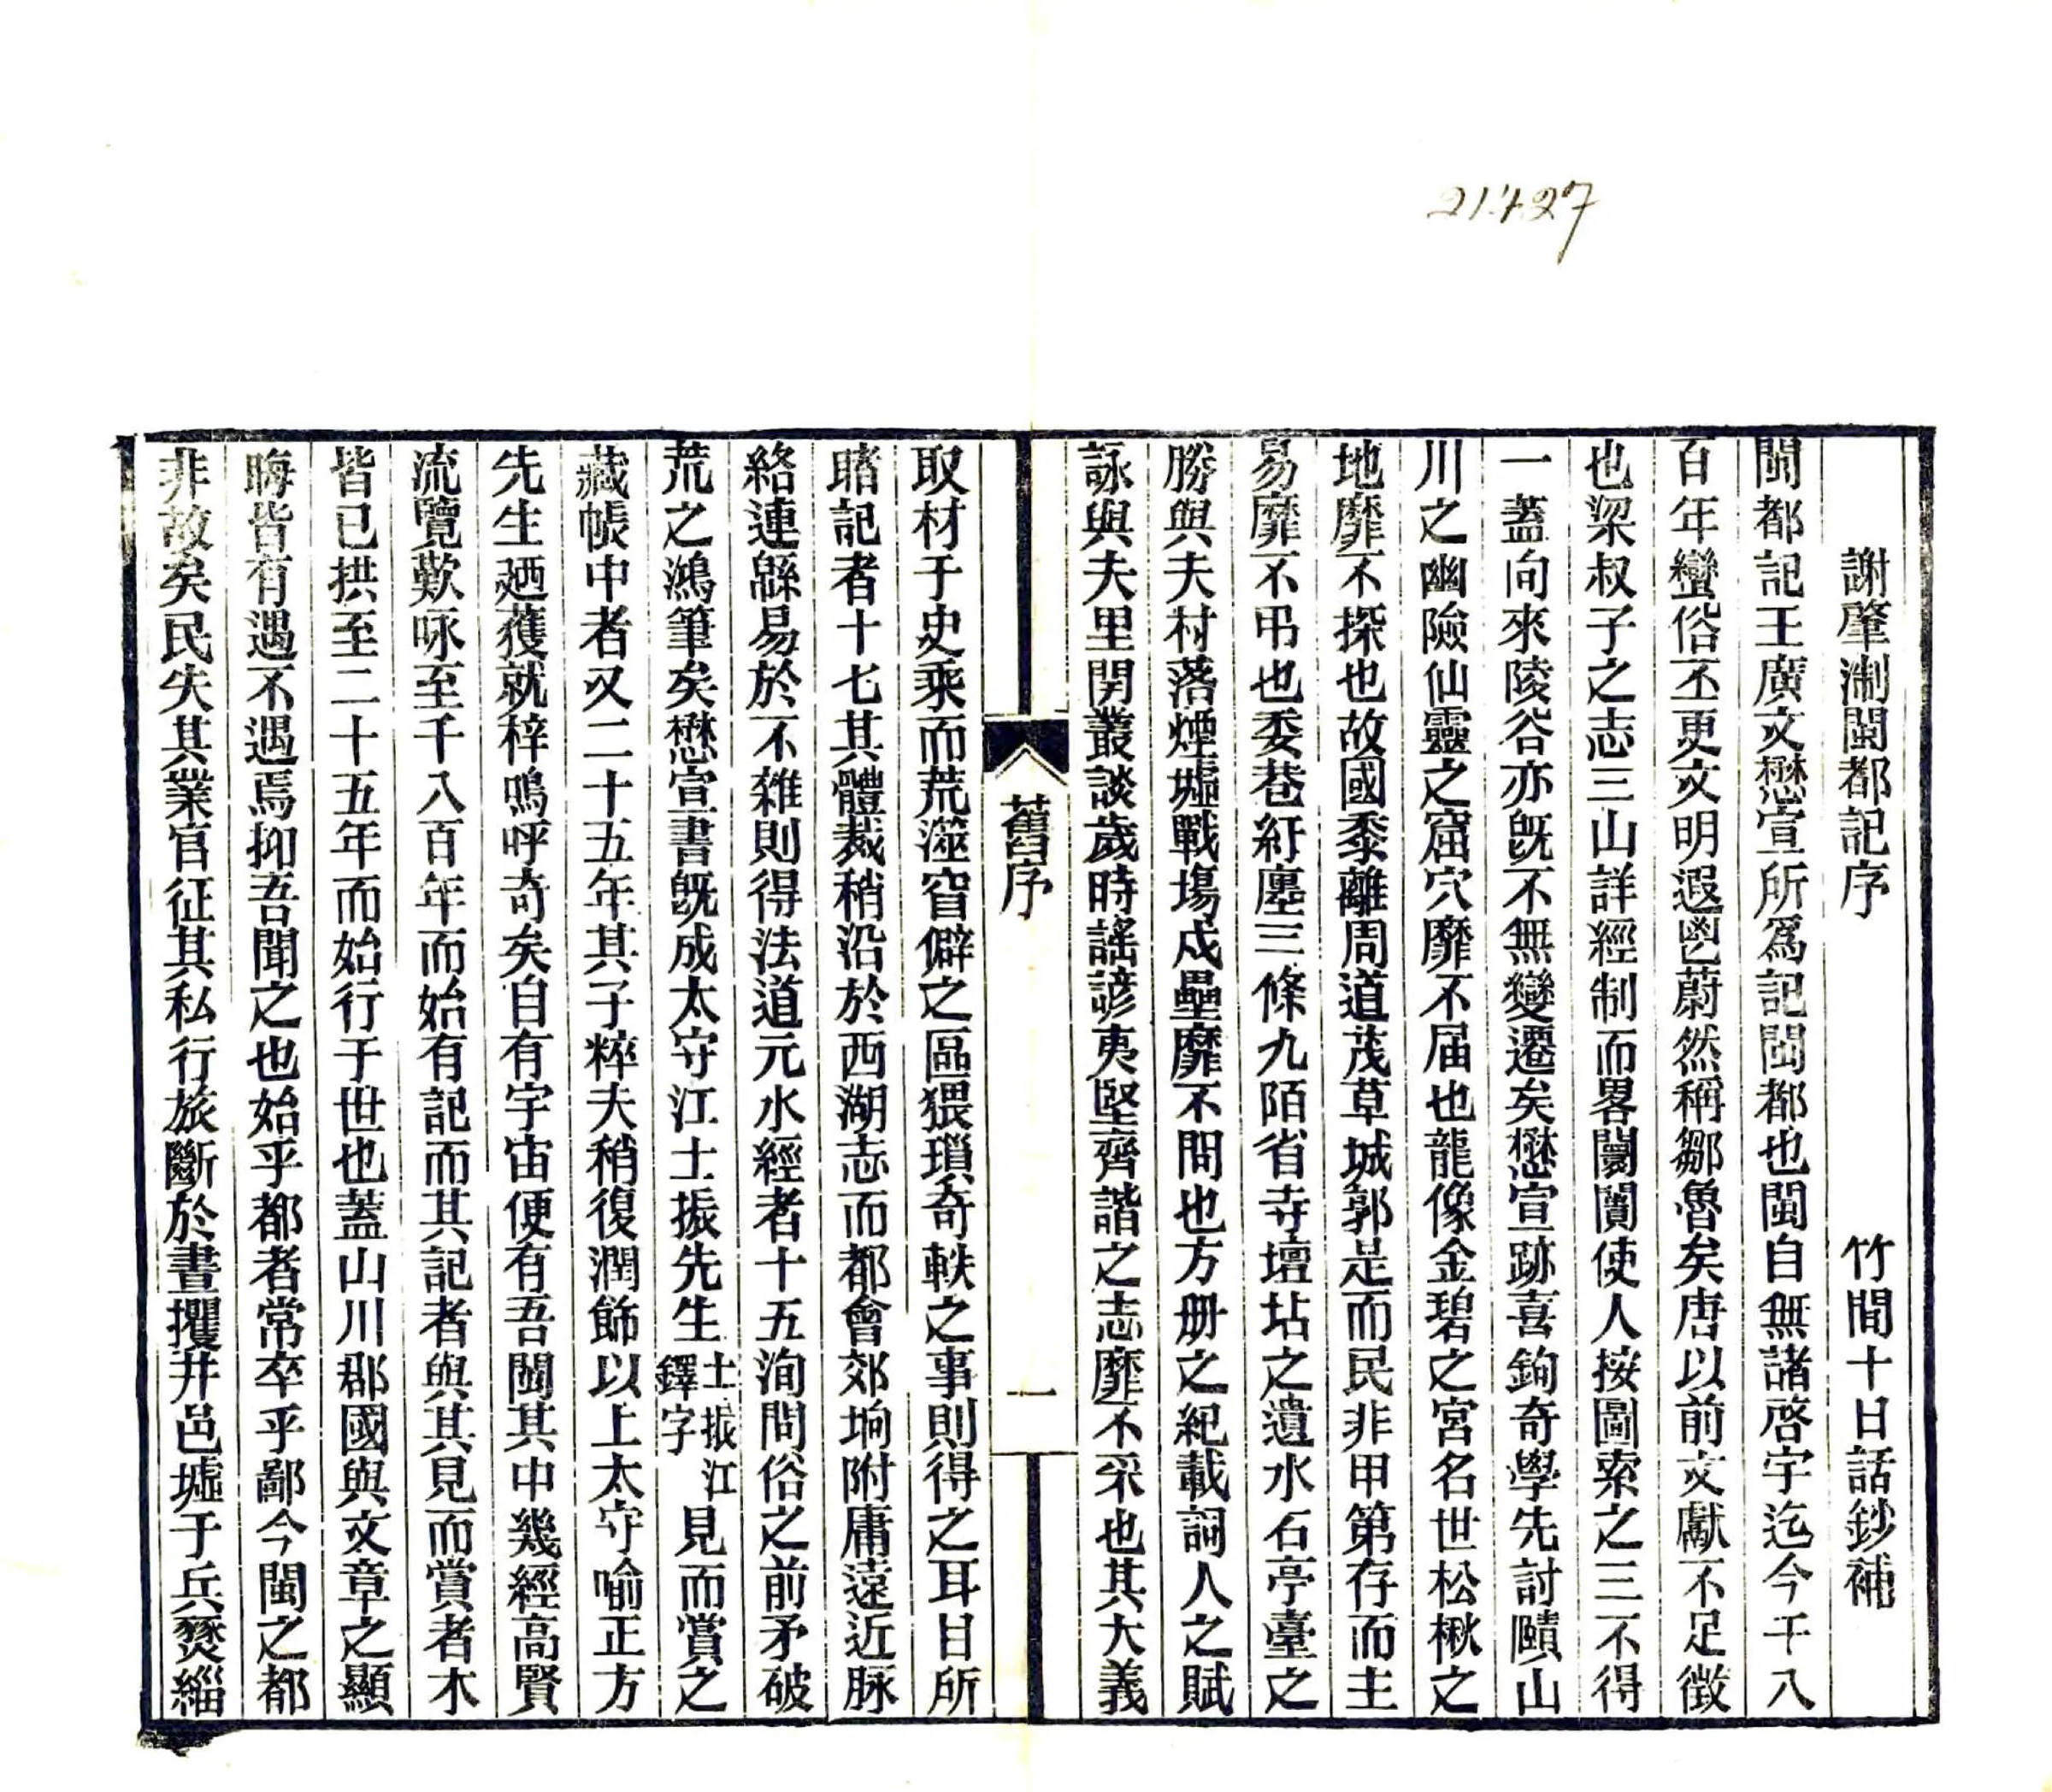 21427
謝肇淛閩都記序　竹間十日話鈔補
閩都記王廣文懋宣所爲記閩都也閩自無諸啓宇迄今千八
百年蠻俗丕更文明遐鬯蔚然稱鄒魯矣唐以前文獻不足徵
也梁叔子之志三山詳經制而畧闤闠使人按圖索之三不得
一蓋向來陵谷亦旣不無變遷矣懋宣跡喜鉤奇學先討賾山
川之幽險仙靈之窟穴靡不届也龍像金碧之宮名世松楸之
地靡不探也故國黍離周道茂草城郭是而民非甲第存而主
易靡不弔也委巷紆廛三條九陌省寺壇坫之遺水石亭臺之
勝與夫村落煙墟戰塲戍壘靡不問也方册之紀載詞人之賦
詠與夫里閈叢談歲時謠諺夷堅齊諧之志靡不采也其大義
舊序
一
取材于史乘而荒澨窅僻之區猥瑣奇軼之事則得之耳目所
睹記者十七其體裁稍沿於西湖志而都會郊坰附庸遠近脉
絡連緜易於不雜則得法道元水經者十五洵問俗之前矛破
荒之鴻筆矣懋宣書旣成太守江士振先生士振江鐸字見而賞之
藏帳中者又二十五年其子粹夫稍復潤飾以上太守喻正方
先生廼獲就梓嗚呼奇矣自有宇宙便有吾閩其中幾經高賢
流覽歎咏至千八百年而始有記而其記者與其見而賞者木
皆已拱至二十五年而始行于世也蓋山川郡國與文章之顯
晦皆有遇不遇焉抑吾聞之也始乎都者常卒乎鄙今閩之都
非故矣民失其業官征其私行旅斷於晝攫井邑墟于兵燹緇